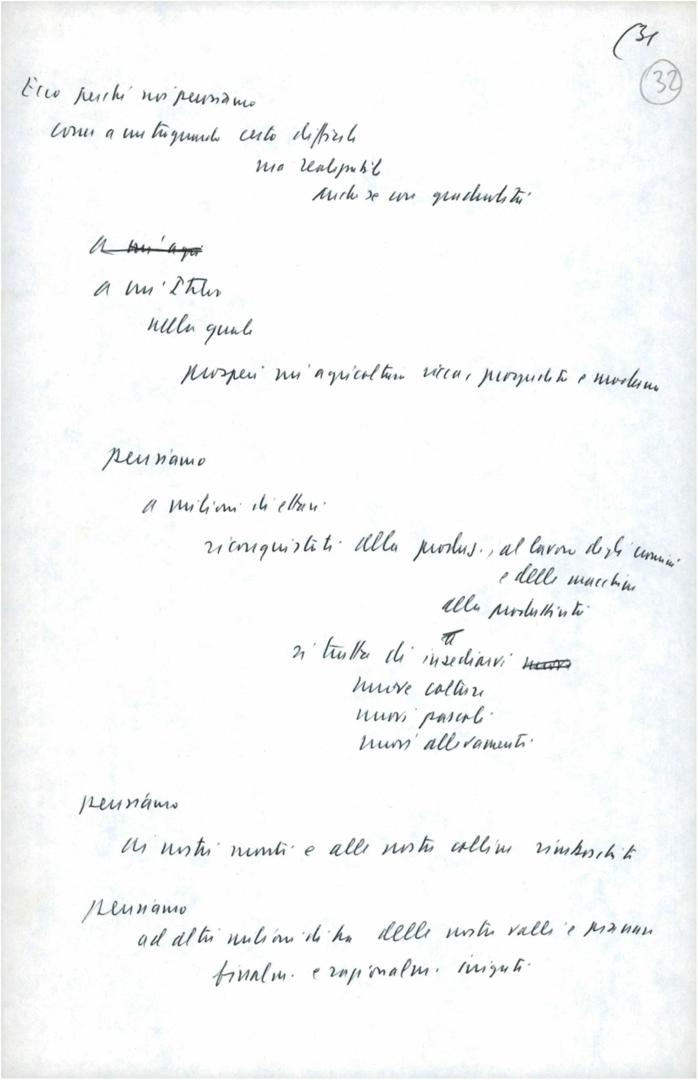 (31
32
Ecco perché noi pensiamo
come a un traguardo certo difficile
ma realizzabile
anche se con gradualità
a un'agri
a un'Italia
nella quale
prosperi un'agricoltura ricca, progredita e moderna
pensiamo
a milioni di ettari
riconquistati alla produz., al lavoro degli uomini
e delle macchine
alla produttività
si tratta di insediarvi nuove
nuove colture
nuovi pascoli
nuovi allevamenti
pensiamo
ai nostri monti e alle nostre colline rimboschite
pensiamo
ad altri milioni di ha delle nostre valli e pianure
finalm. e razionalm. irrigati